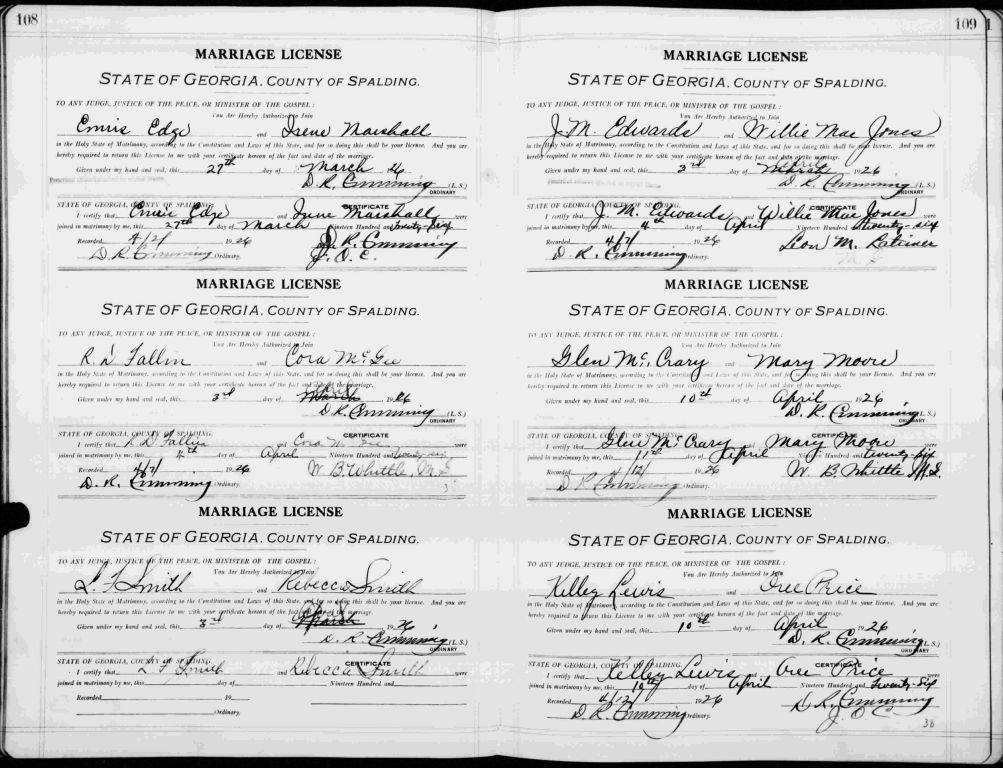 108
MARRIAGE LICENSE
STATE OF GEORGIA, COUNTY OF SPALDING.
TO ANY JUDGE, JUSTICE OF THE PEACE, OR MINISTER OF THE GOSPEL:
You Are Hereby Authorized to Join
Emris Edge and Irene Marshall
in the Holy State of Matrimony, according to the Constitution and Laws of this State, and for so doing this shall be your license. And you are
hereby required to return this License to me with your certificate hereon of the fact and date of the marriage.
Given under my hand and seal, this 27th day of March 1926
D. R. Cumming (L. S.)
ORDINARY
STATE OF GEORGIA, COUNTY OF SPALDING. CERTIFICATE
I certify that Edge and Irene Marshall were
joined in matrimony by me, this 27th day of March Nineteen Hundred and twenty-six
Recorded 4/2/ 1926 D. R. Cumming
D. R. Cumming Ordinary. J. O. C.
MARRIAGE LICENSE
STATE OF GEORGIA, COUNTY OF SPALDING.
TO ANY JUDGE, JUSTICE OF THE PEACE, OR MINISTER OF THE GOSPEL:
You Are Hereby Authorized to Join
R. D. Fallin and Cora McGee
in the Holy State of Matrimony, according to the Constitution and Laws of this State, and for so doing this shall be your license. And you are
hereby required to return this License to me with your certificate hereon of the fact and date of the marriage.
Given under my hand and seal, this 3rd day of March 1926
D. R. Cumming (L. S.)
ORDINARY
STATE OF GEORGIA, COUNTY OF SPALDING. CERTIFICATE
I certify that R. D. Fallin and Cora McGee were
joined in matrimony by me, this 4th day of April Nineteen Hundred and twenty-six
Recorded 4/7/ 1926 W. B. Whittle, M. G.
D. R. Cumming Ordinary.
MARRIAGE LICENSE
STATE OF GEORGIA, COUNTY OF SPALDING.
TO ANY JUDGE, JUSTICE OF THE PEACE, OR MINISTER OF THE GOSPEL:
You Are Hereby Authorized to Join
L. F. Smith and Rebecca Smith
in the Holy State of Matrimony, according to the Constitution and Laws of this State, and for so doing this shall be your license. And you are
hereby required to return this License to me with your certificate hereon of the fact and date of the marriage.
Given under my hand and seal, this 3rd day of March 1926
D. R. Cumming (L. S.)
ORDINARY
STATE OF GEORGIA, COUNTY OF SPALDING. CERTIFICATE
I certify that L F Smith and Rebecca Smith were
joined in matrimony by me, this day of Nineteen Hundred and
Recorded 19
Ordinary.
109
MARRIAGE LICENSE
STATE OF GEORGIA, COUNTY OF SPALDING.
TO ANY JUDGE, JUSTICE OF THE PEACE, OR MINISTER OF THE GOSPEL:
You Are Hereby Authorized to Join
J. M. Edwards and Willie Mae Jones
in the Holy State of Matrimony, according to the Constitution and Laws of this State, and for so doing this shall be your license. And you are
hereby required to return this License to me with your certificate hereon of the fact and date of the marriage.
April
Given under my hand and seal, this 3rd day of March 1926
D. R. Cumming (L. S.)
ORDINARY
STATE OF GEORGIA, COUNTY OF SPALDING. CERTIFICATE
I certify that J. M. Edwards and Willie Mae Jones were
joined in matrimony by me, this 4th day of April Nineteen Hundred and twenty-six
Recorded 4/7/ 1926 Leon M. Latimer
D. R. Cumming Ordinary. M. G.
MARRIAGE LICENSE
STATE OF GEORGIA, COUNTY OF SPALDING.
TO ANY JUDGE, JUSTICE OF THE PEACE, OR MINISTER OF THE GOSPEL:
You Are Hereby Authorized to Join
Glen McCrary and Mary Moore
in the Holy State of Matrimony, according to the Constitution and Laws of this State, and for so doing this shall be your license. And you are
hereby required to return this License to me with your certificate hereon of the fact and date of the marriage.
Given under my hand and seal, this 10th day of April 1926
D. R. Cumming (L. S.)
ORDINARY
STATE OF GEORGIA, COUNTY OF SPALDING. CERTIFICATE
I certify that Glen McCrary and Mary Moore were
joined in matrimony by me, this 11th day of April Nineteen Hundred and twenty-six
Recorded 4/12/ 1926 W. B. Whittle M. G.
D R Cumming Ordinary.
MARRIAGE LICENSE
STATE OF GEORGIA, COUNTY OF SPALDING.
TO ANY JUDGE, JUSTICE OF THE PEACE, OR MINISTER OF THE GOSPEL:
You Are Hereby Authorized to Join
Kelley Lewis and Oree Price
in the Holy State of Matrimony, according to the Constitution and Laws of this State, and for so doing this shall be your license. And you are
hereby required to return this License to me with your certificate hereon of the fact and date of the marriage.
Given under my hand and seal, this 10th day of April 1926
D. R. Cumming (L. S.)
ORDINARY
STATE OF GEORGIA, COUNTY OF SPALDING. CERTIFICATE
I certify that Kelley Lewis and Oree Price were
joined in matrimony by me, this 10th day of April Nineteen Hundred and Twenty-Six
Recorded 4/12/ 1926 D. R. Cumming
D. R. Cumming Ordinary. J. O. C.
36